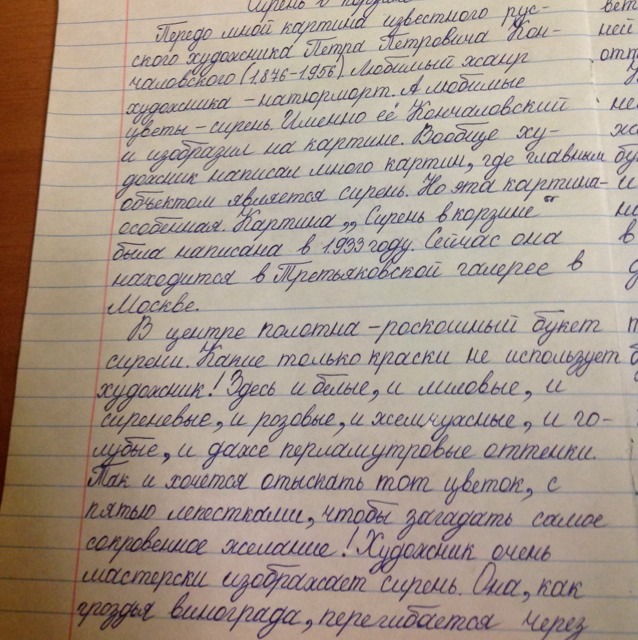 Сирень в
Передо мной картина известного рус-
ского художника Петра Петровича Кон-
чаловского (1876-1956). Любимый жанр
художника - натюрморт. А любимые
цветы - сирень. Именно её Кончаловский
и изобразил на картине. Вообще ху-
дожник написал много картин, где главным
объектом является сирень. Но эта картина -
особенная. Картина „Сирень в корзине“
была написана в 1933 году. Сейчас она
находится в Третьяковской галерее в
Москве.
В центре полотна - роскошный букет
сирени. Какие только краски не использует
художник! Здесь и белые, и лиловые, и
сиреневые, и розовые, и жемчужные, и го-
лубые, и даже перламутровые оттенки.
Так и хочется отыскать тот цветок, с
пятью лепестками, чтобы загадать самое
сокровенное желание! Художник очень
мастерски изображает сирень. Она, как
гроздья винограда, перегибается через